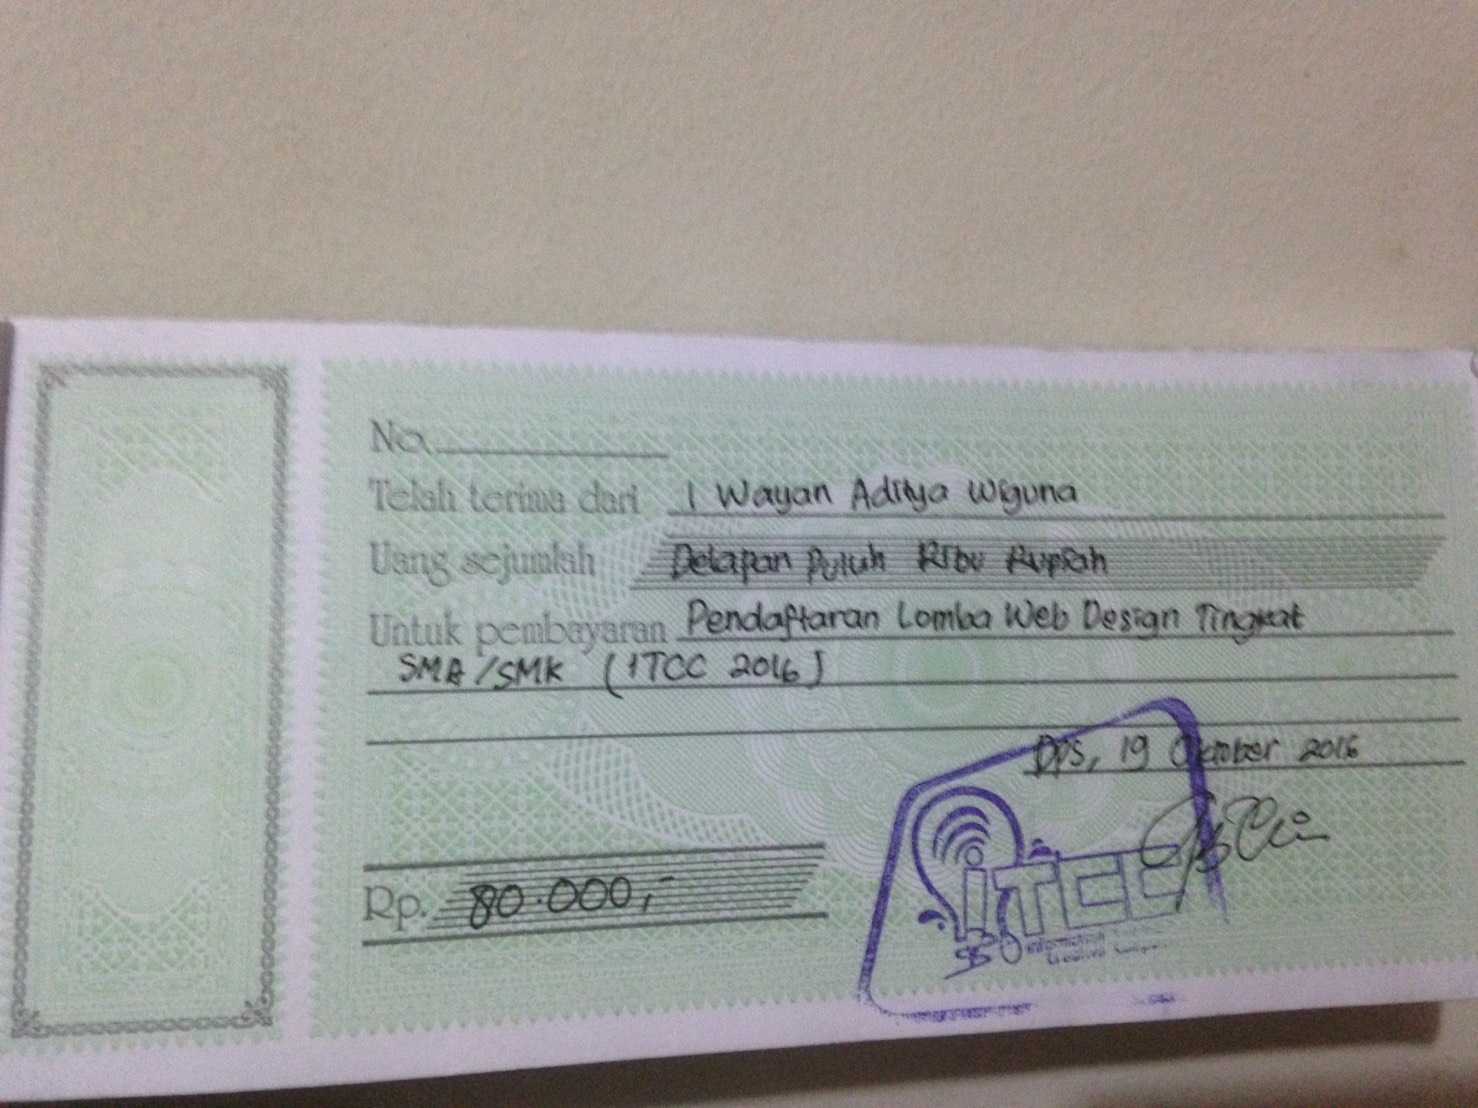 No.
Telah terima dari I Wayan Aditya Wiguna
Uang sejumlah Delapan Puluh Ribu Rupiah
Untuk pembayaran Pendaftaran Lomba Web Design Tingkat
SMA/SMK (ITCC 2016)
Dps, 19 Oktober 2016
Rp. 80.000,-
ITCC